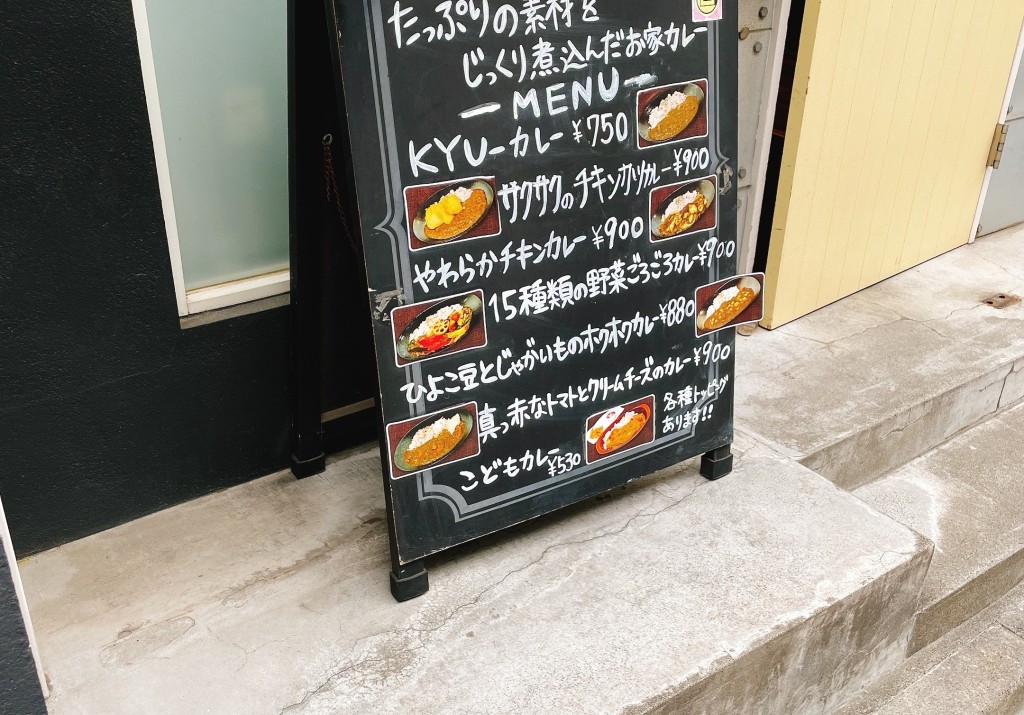 たっぷりの素材を
じっくり煮込んだお家カレー
MENU
KYUーカレー ¥750
サクサクのチキンカツカレー ¥900
やわらかチキンカレー ¥900
15種類の野菜ごろごろカレー ¥900
ひよこ豆とじゃがいものホクホクカレー ¥880
真っ赤なトマトとクリームチーズのカレー ¥900
こどもカレー ¥530
各種トッピング
あります!!